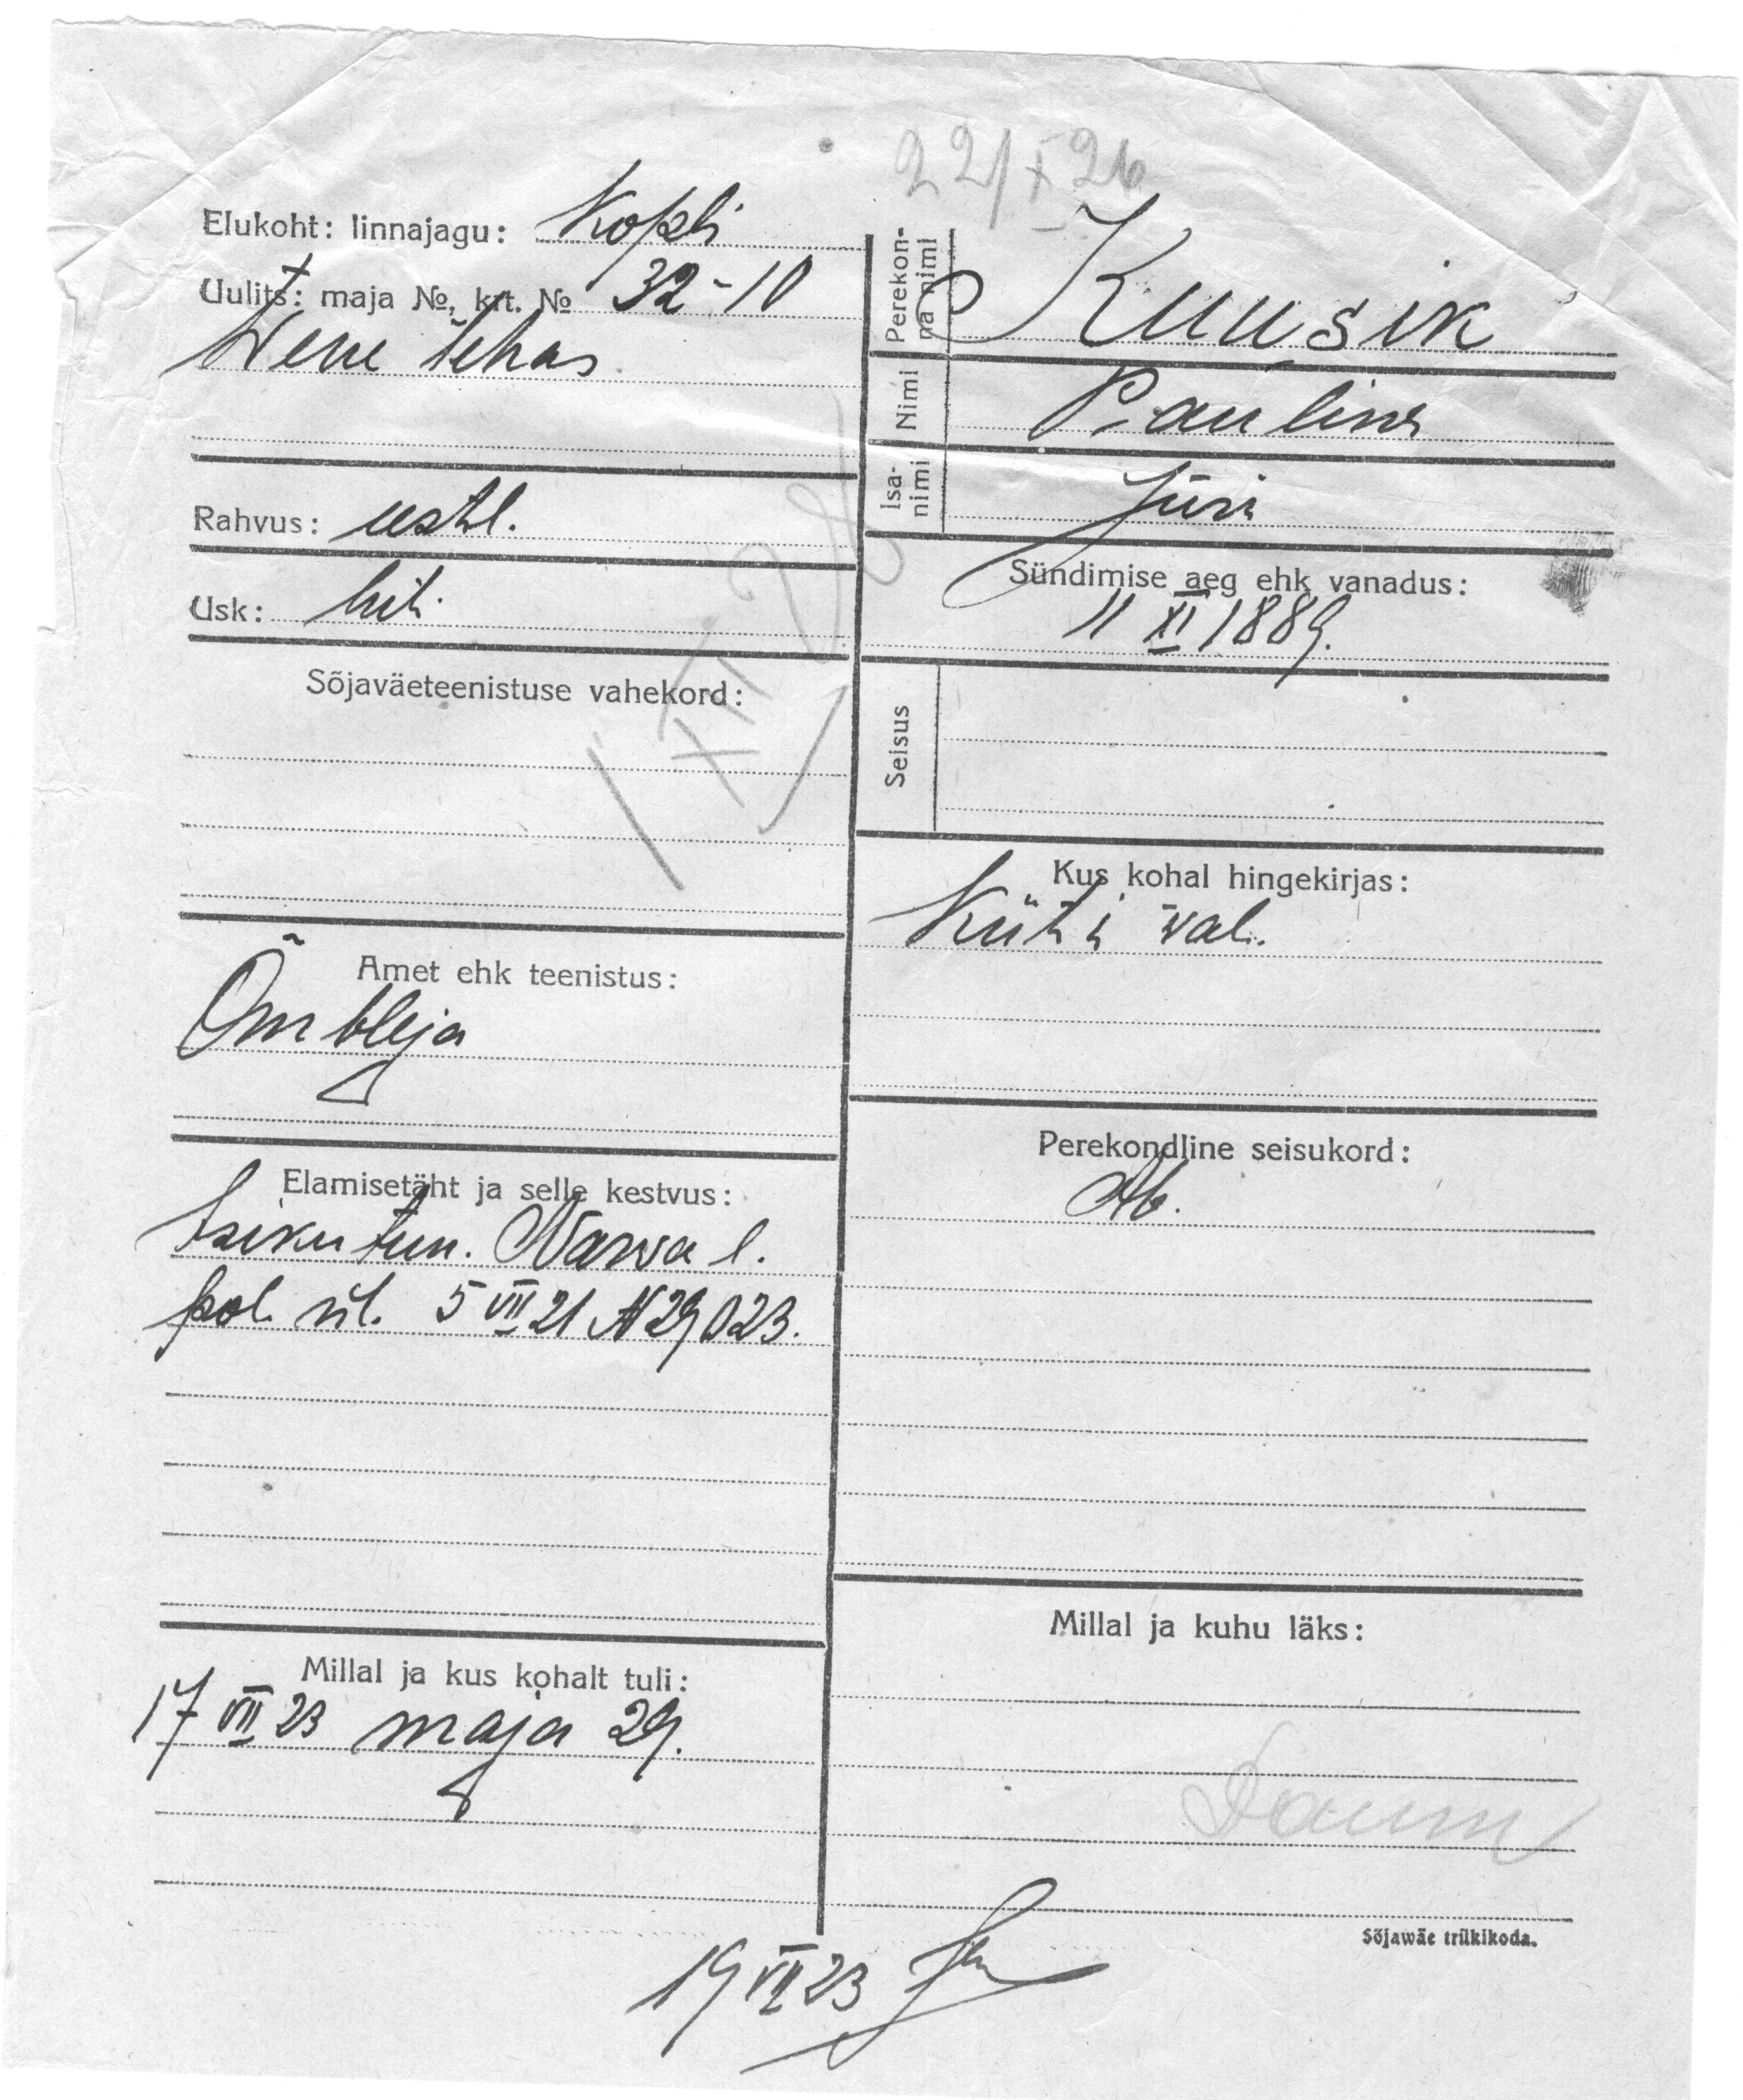 22/X 26
Elukoht: linnajagu: Kopli
Uulits: maja №, krt. № 32-10
Wene tehas
Rahvus: eestl.
Usk: lut.
Sõjaväeteenistuse vahekord:
Amet ehk teenistus:
Õmbleja
Elamisetäht ja selle kestvus:
Isiku tun. Narva l.
pol. ül. 5 VII 21 № 29023.
Millal ja kus kohalt tuli:
17 VII 23 maja 29.
Perekonna nimi Kuusik
Nimi Pauline
Isanimi Jüri
Sündimise aeg ehk vanadus:
11 XI 1889.
Seisus
Kus kohal hingekirjas:
Küti val.
Perekondline seisukord:
Ab.
Millal ja kuhu läks:
Sõjawäe trükikoda.
19 VII 23